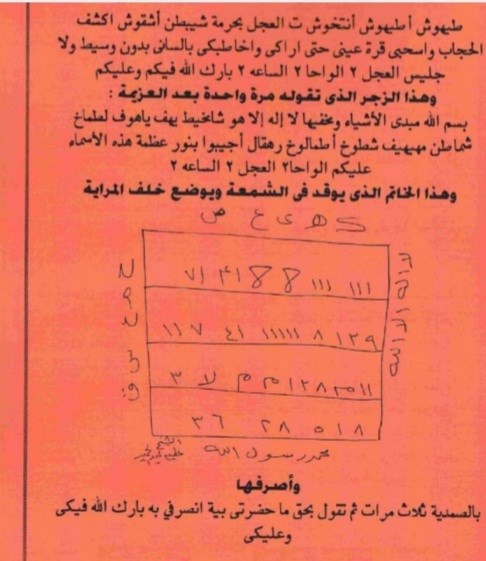 طيهوش أطيهوش أنتخوش ت العجل بحرمة شيبطن أشقوش اكشف
الحجاب واسحبى قرة عينى حتى اراكى واخاطبكى بالسانى بدون وسيط ولا
جليس العجل ٢ الواحا ٢ الساعه ٢ بارك الله فيكم وعليكم
وهذا الزجر الذى تقوله مرة واحدة بعد العزيمة :
بسم الله مبدى الأشياء ومخفيها لا إله إلا هو شانخيط يهف ياهوف لطماخ
شماطن مهيهيف شطوخ أطمالوخ رهقال أجيبوا بنور عظمة هذه الأسماء
عليكم الواحا٢ العجل ٢ الساعه ٢
وهذا الخاتم الذى يوقد فى الشمعة ويوضع خلف المراية
ك ه ى ع ص
لا اله الا الله
٧١ ٨ ٨ ١١١ ١١١
١١٧ ١١١١١ ٨ ١٢٩
٣ لا م م ١٢٨ م ١١
٣٦ ٢٨ ٥١٨
محمد رسول الله
وأصرفها
بالصمدية ثلاث مرات ثم تقول بحق ما حضرتى بية انصرفي به بارك الله فيكى
وعليكى